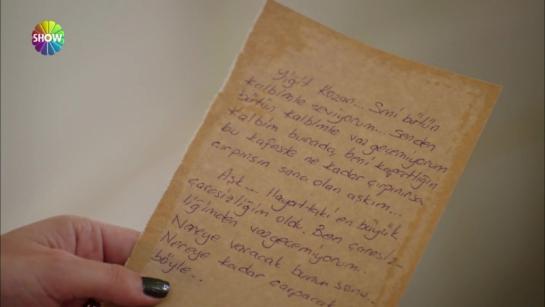 SHOW
Yiğit Kozan... Seni bütün
kalbimle seviyorum... Senden
bütün kalbimle vazgeçemiyorum
kalbim burada, beni kapattığın
bu kafeste ne kadar çırpınırsa
çırpınsın sana olan aşkım...
Aşk... Hayattaki en büyük
çaresizliğim oldu. Ben çaresiz-
liğimden vazgeçemiyorum.
Nereye varacak bunun sonu
Nereye kadar çarparak
böyle..